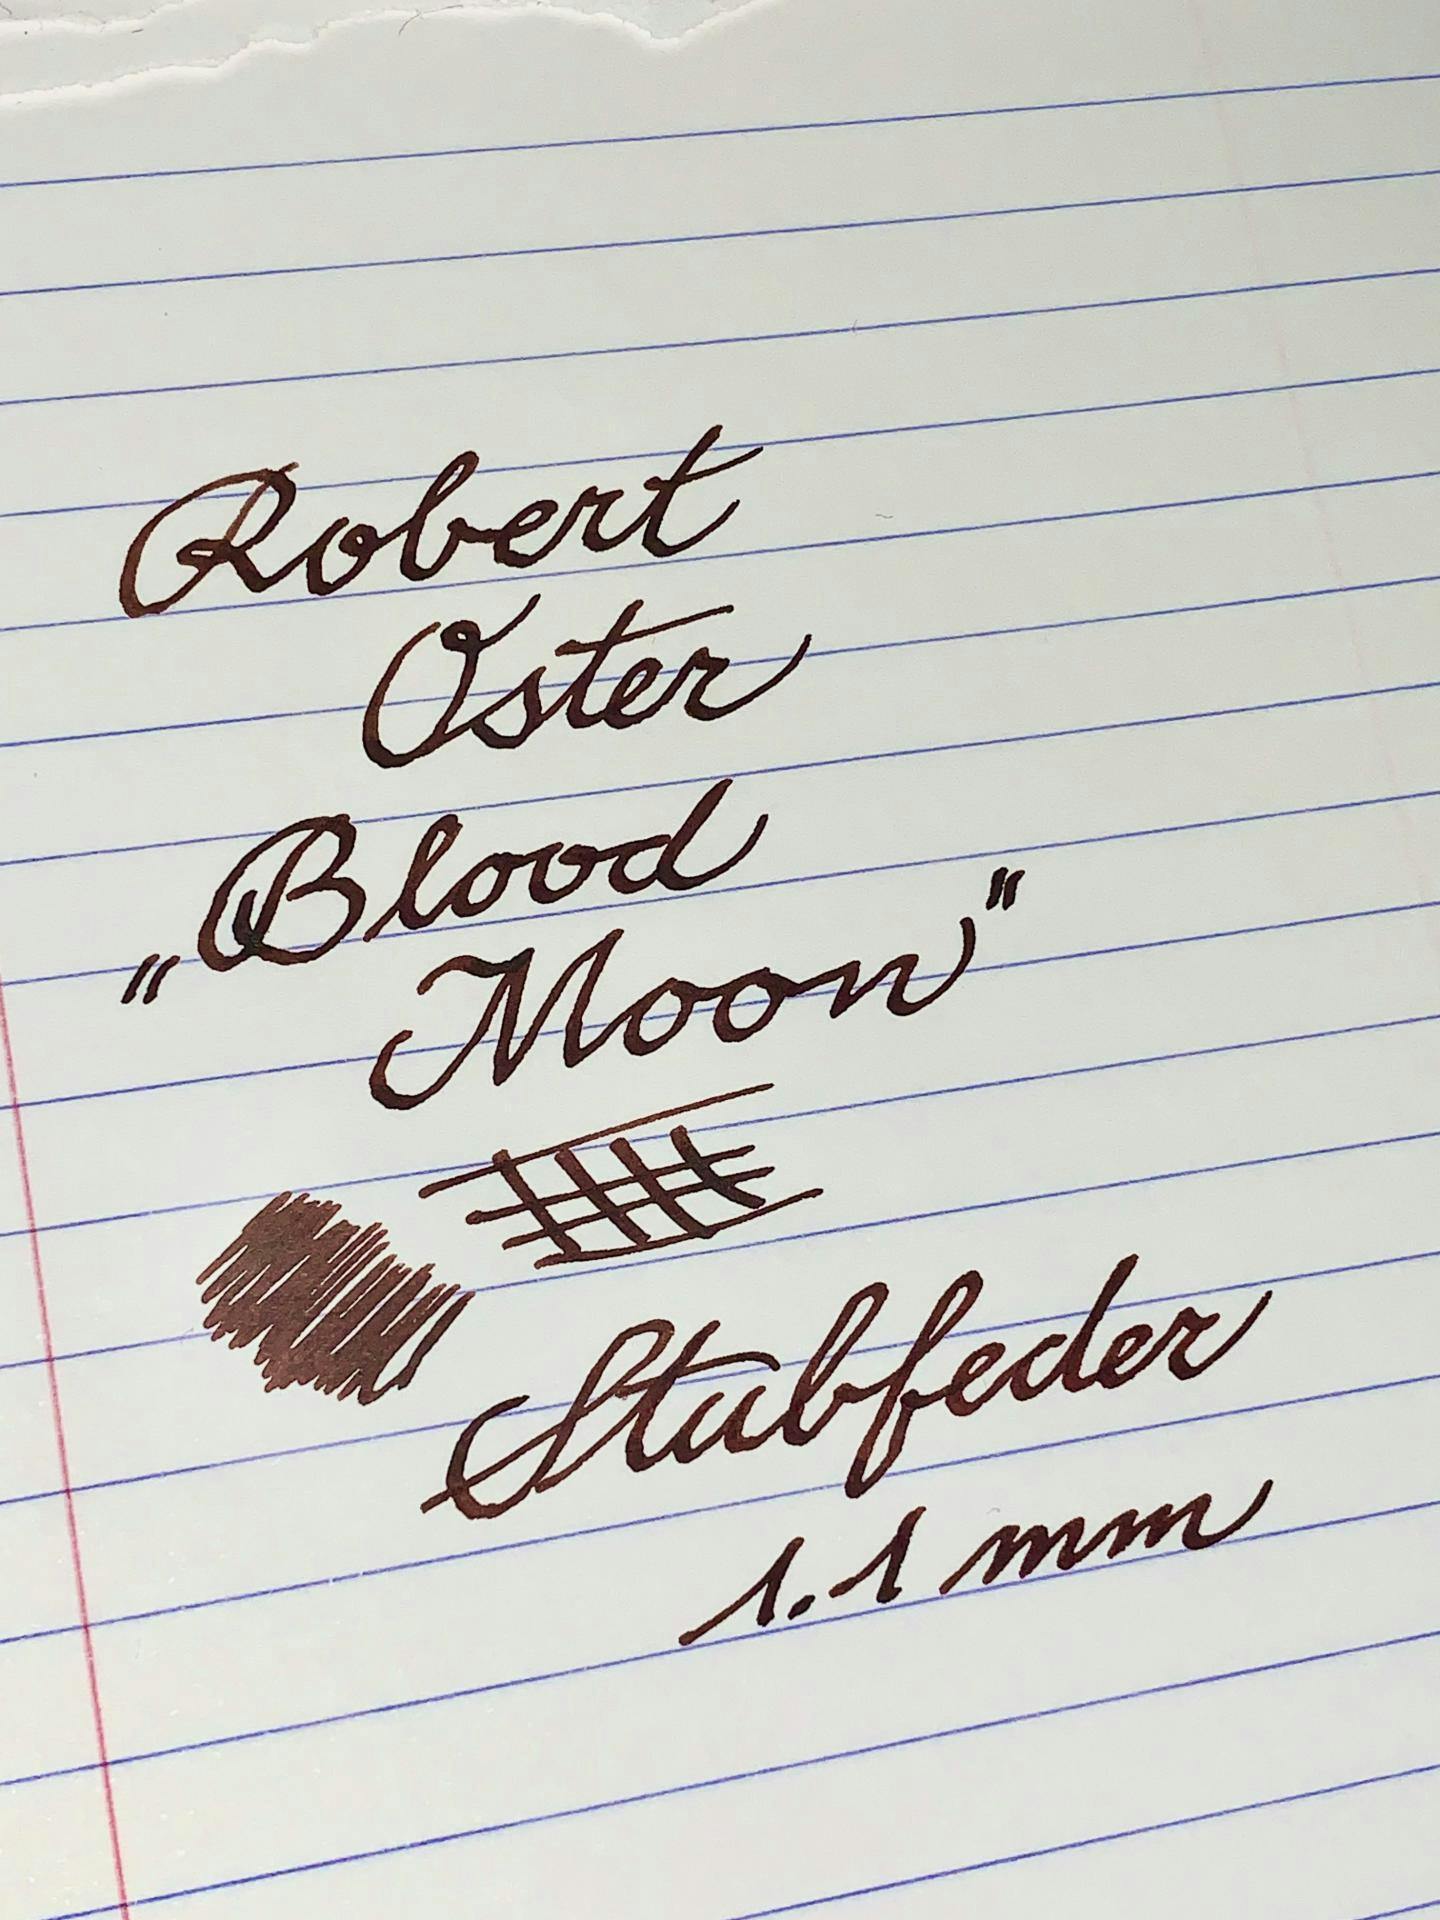 Robert
Oster
„Blood
Moon"
Stubfeder
1.1 mm